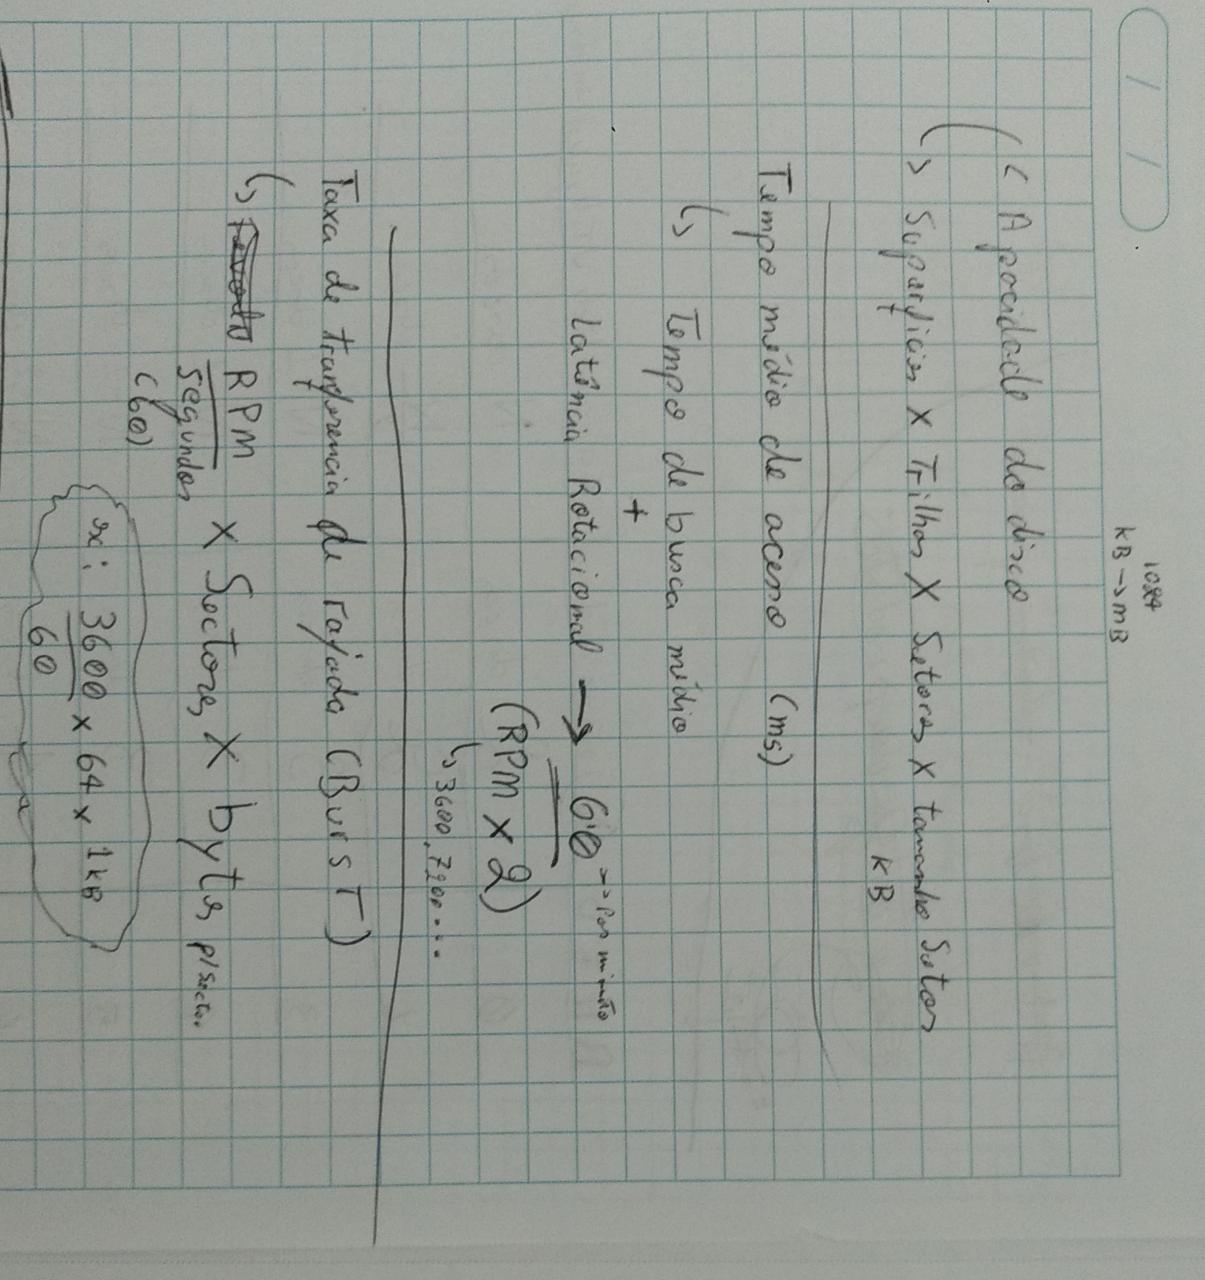 1024
KB → mB
CApacidade do disco
↳ Superficies X Trilhas X Setores X tamanho Setor
KB
Tempo médio de acesso (ms)
↳ Tempo de busca médio
+
Latência Rotacional → 60 → por minuto
(RPM x 2)
↳ 3600, 7200...
Taxa de tranferencia de rajada (BursT)
↳ RPM x Sectores X bytes p/Sector
segundos
(60)
ex: 3600 x 64 x 1kB
60